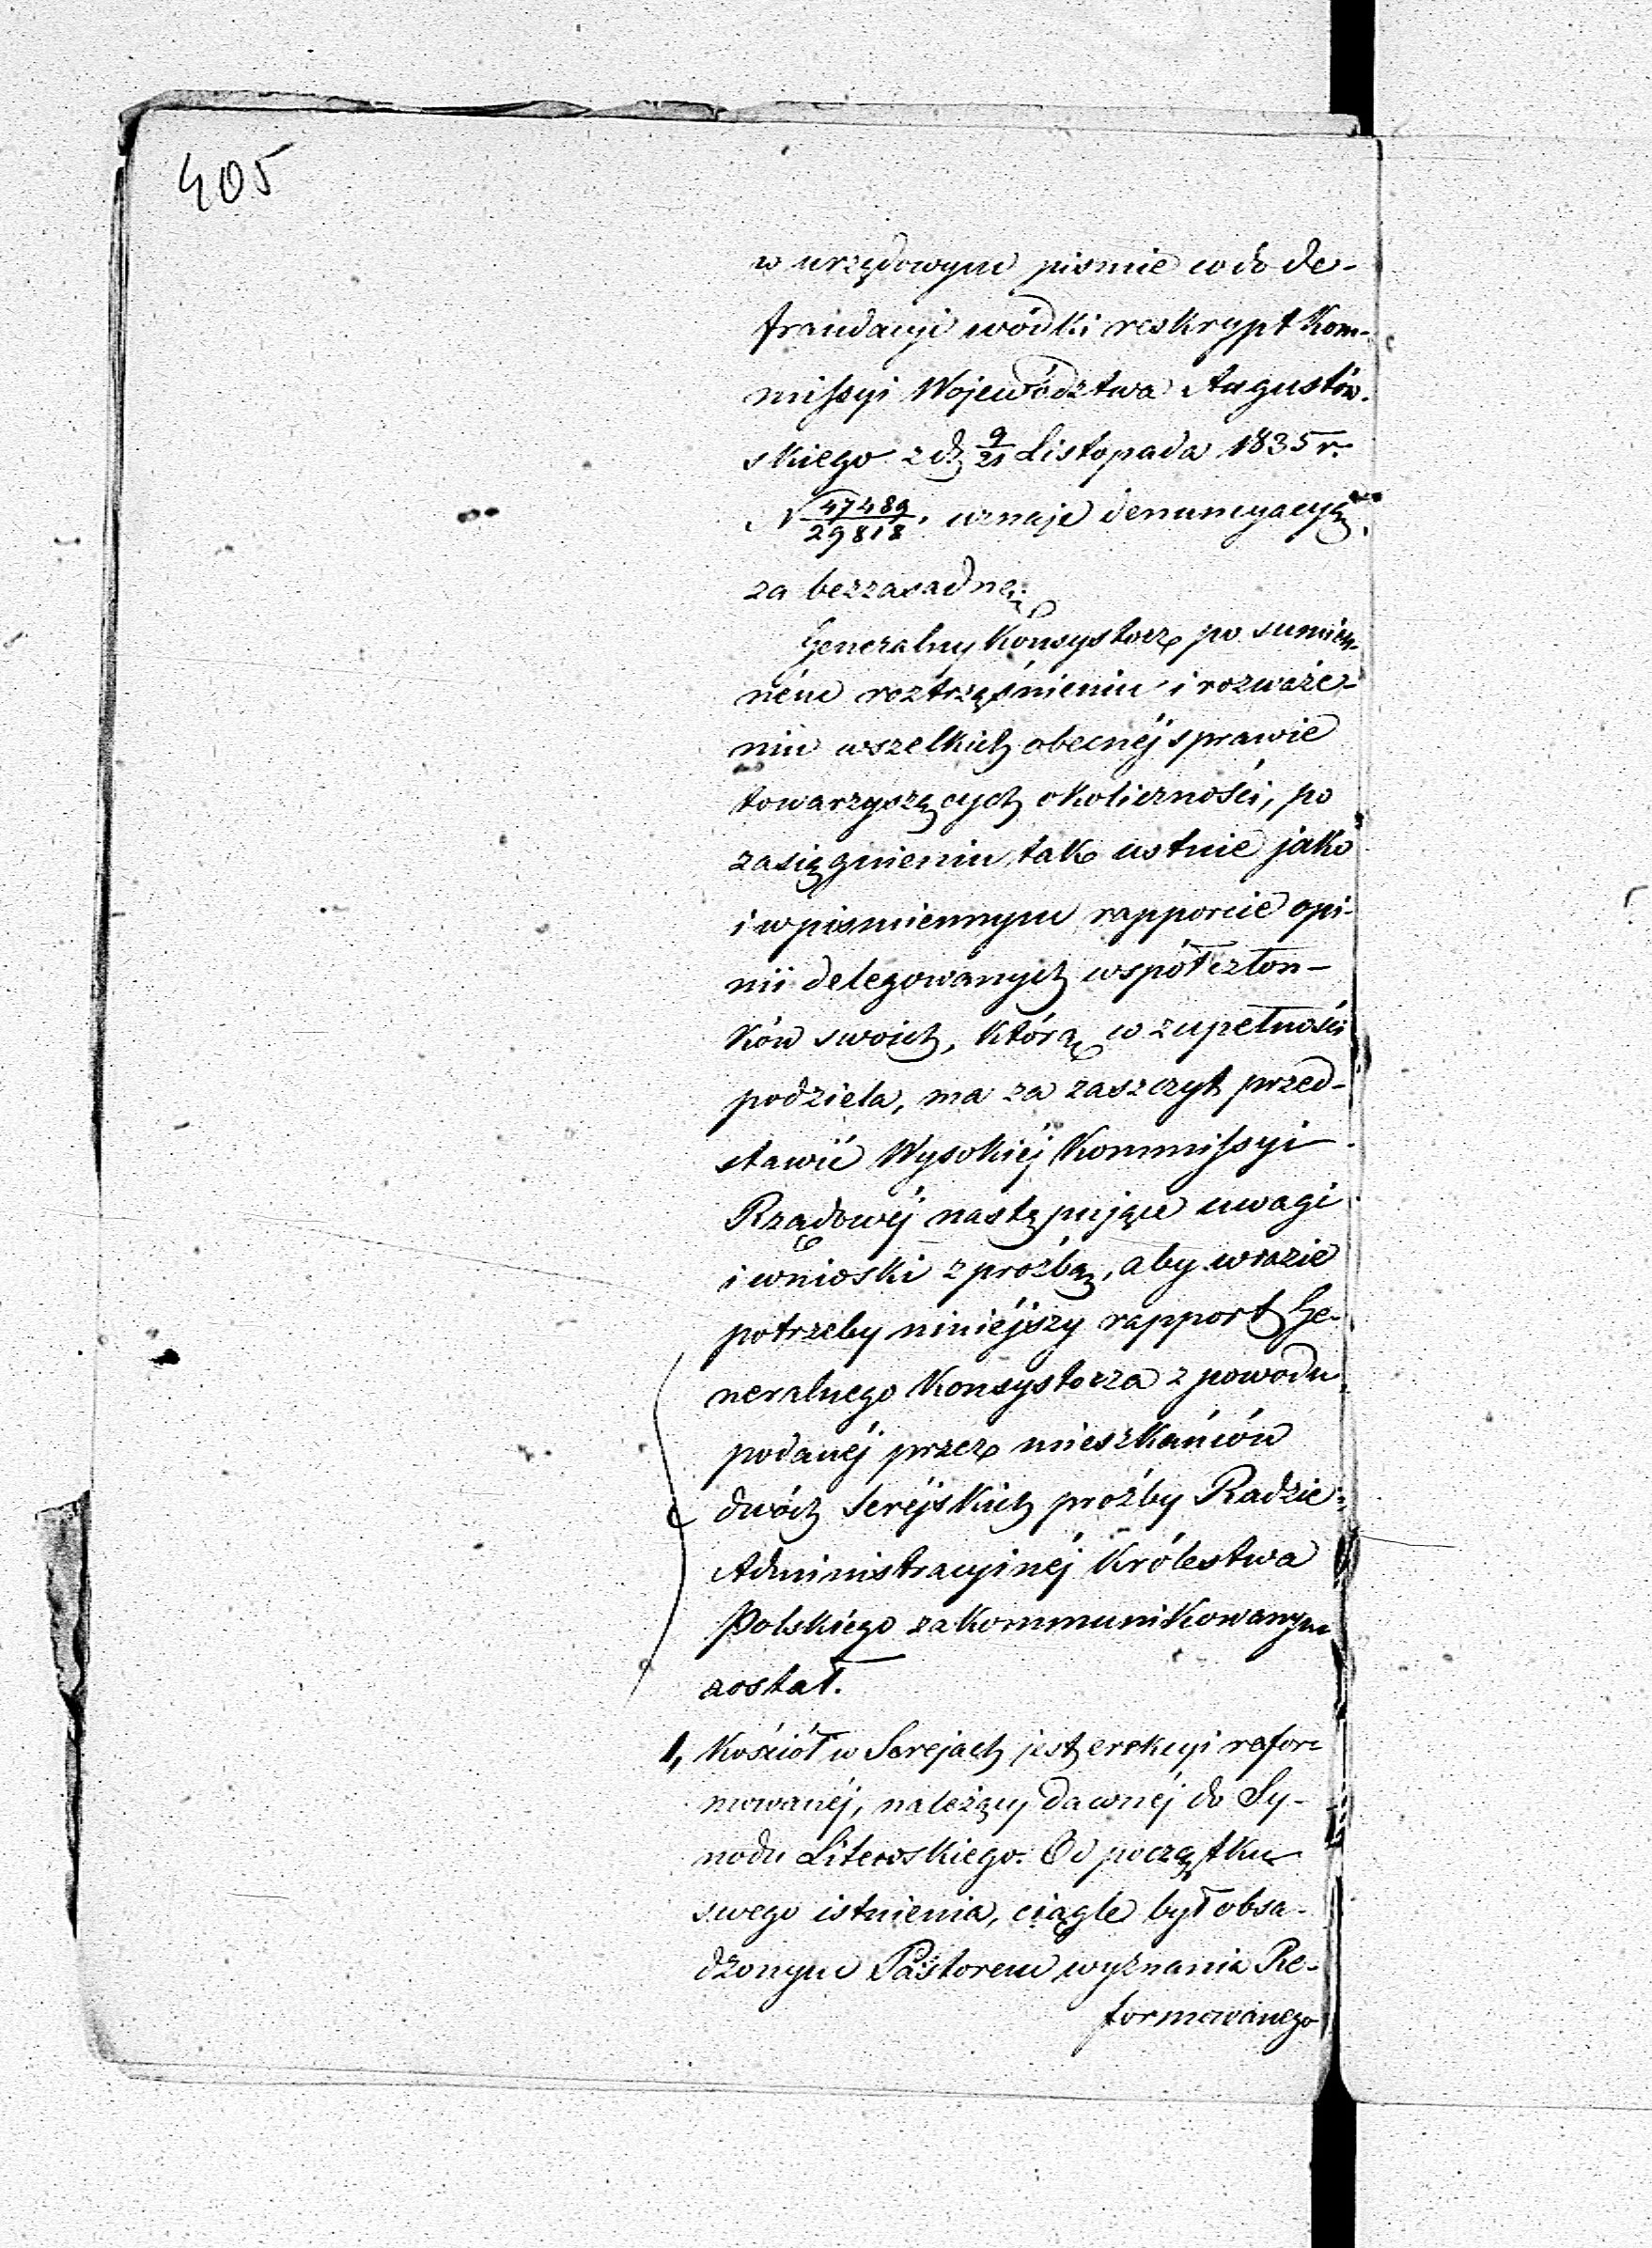 405
w urzędowym pismie co do de-
fraudacyi wódki reskrypt Kom-
missyi Województwa Augustów-
skiego z d. 9/21 Listopada 1835 r.
N 47489/29818. uznaje denuncyacyą
za bezzasadną.
Generalny Konsystorz po sumien-
ném roztrząśnieniu i rozważe-
niu wszelkich obecnéj sprawie
towarzyszących okoliczności, po
zasiągnieniu tak ustnie jako
i w pismiennym rapporcie opi-
nii delegowanych współczłon-
ków swoich, którą w zupełności
podziela, ma za zaszczyt przed-
stawić Wysokiéj Kommissyi
Rządowéj następujące uwagi
i wnioski z proźbą, aby w razie
potrzeby niniéjszy rapport Ge-
neralnego Konsystorza z powodu
podanéj przez mieszkańców
dwóch Seréjskich proźby Radzie
Administracyjnéj Królestwa
Polskiego zakommunikowanym
został.
1, Kościół w Serejach jest erekcyi refor-
mowanéj, należący dawnéj do Sy-
nodu Litewskiego. Od początku
swego istnienia, ciągle był obsa-
dzonym Pastorem wyznania Re-
formowanego